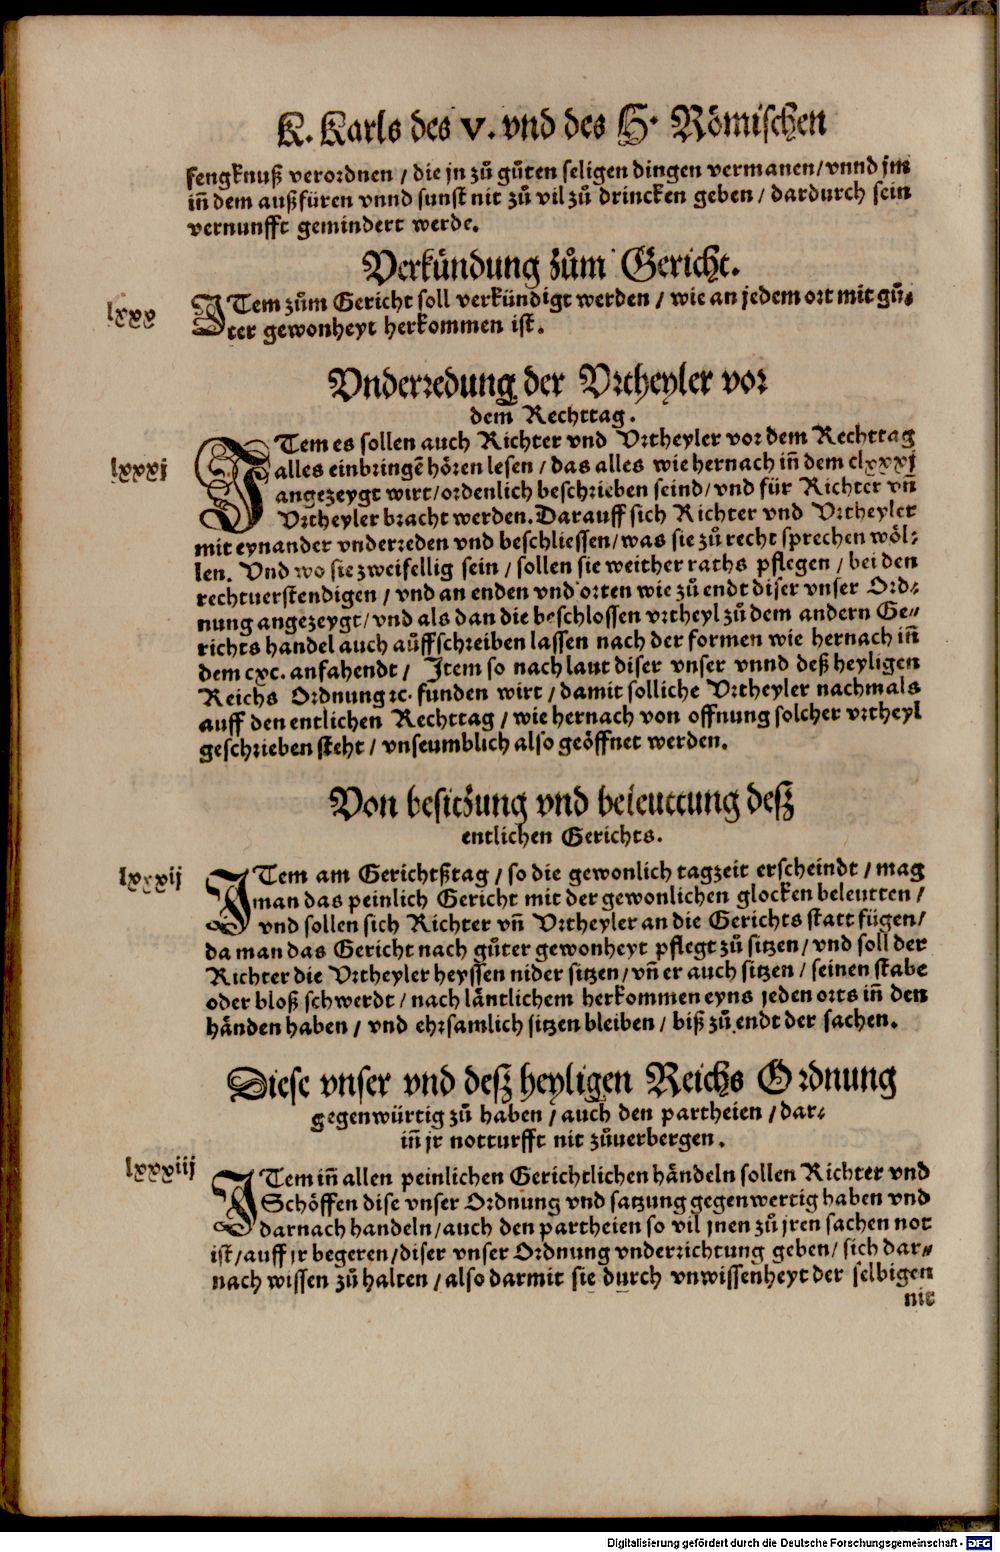 K. Karls des V. vnd des H. Römischen
fengknuß verordnen / die jn zů gůten seligen dingen vermanen / vnnd jm
iñ dem außfüren vnnd sunst nit zů vil zů drincken geben / dardurch sein
vernunfft gemindert werde.
Verkündung zům Gericht.
lxxx
ITem zům Gericht soll verkündigt werden / wie an jedem ort mit gů⸗
ter gewonheyt herkommen ist.
Vnderredung der Vrtheyler vor
dem Rechttag.
lxxxj
ITem es sollen auch Richter vnd Vrtheyler vor dem Rechttag
alles einbringẽ hören lesen / das alles wie hernach iñ dem clxxxj
angezeygt wirt / ordenlich beschrieben seind / vnd für Richter vñ
Vrtheyler bracht werden. Darauff sich Richter vnd Vrtheyler
mit eynander vnderreden vnd beschliessen / was sie zů recht sprechen wöl⸗
len. Vnd wo sie zweifellig sein / sollen sie weither raths pflegen / bei den
rechtuerstendigen / vnd an enden vnd orten wie zů endt diser vnser Ord⸗
nung angezeygt / vnd als dan die beschlossen vrtheyl zů dem andern Ge⸗
richts handel auch aůffschreiben lassen nach der formen wie hernach iñ
dem cxc. anfahendt / Item so nach laut diser vnser vnnd deß heyligen
Reichs Ordnung ꝛc. funden wirt / damit solliche Vrtheyler nachmals
auff den entlichen Rechttag / wie hernach von offnung solcher vrtheyl
geschrieben steht / vnseumblich also geöffnet werden.
Von besitzung vnd beleuttung deß
entlichen Gerichts.
lxxxij
ITem am Gerichtßtag / so die gewonlich tagzeit erscheindt / mag
man das peinlich Gericht mit der gewonlichen glocken beleutten /
vnd sollen sich Richter vñ Vrtheyler an die Gerichts statt fügen /
da man das Gericht nach gůter gewonheyt pflegt zů sitzen / vnd soll der
Richter die Vrtheyler heyssen nider sitzen / vñ er auch sitzen / seinen stabe
oder bloß schwerdt / nach läntlichem herkommen eyns jeden orts iñ den
händen haben / vnd ehrsamlich sitzen bleiben / biß zů endt der sachen.
Diese vnser vnd deß heyligen Reichs Ordnung
gegenwürtig zů haben / auch den partheien / dar⸗
iñ jr notturfft nit zůuerbergen.
lxxxiij
ITem iñ allen peinlichen Gerichtlichen händeln sollen Richter vnd
Schöffen dise vnser Ordnung vnd satzung gegenwertig haben vnd
darnach handeln / auch den partheien so vil jnen zů jren sachen not
ist / auff jr begeren / diser vnser Ordnung vnderrichtung geben / sich dar⸗
nach wissen zů halten / also darmit sie durch vnwissenheyt der selbigen
nit
Digitalisierung gefördert durch die Deutsche Forschungsgemeinschaft - DFG